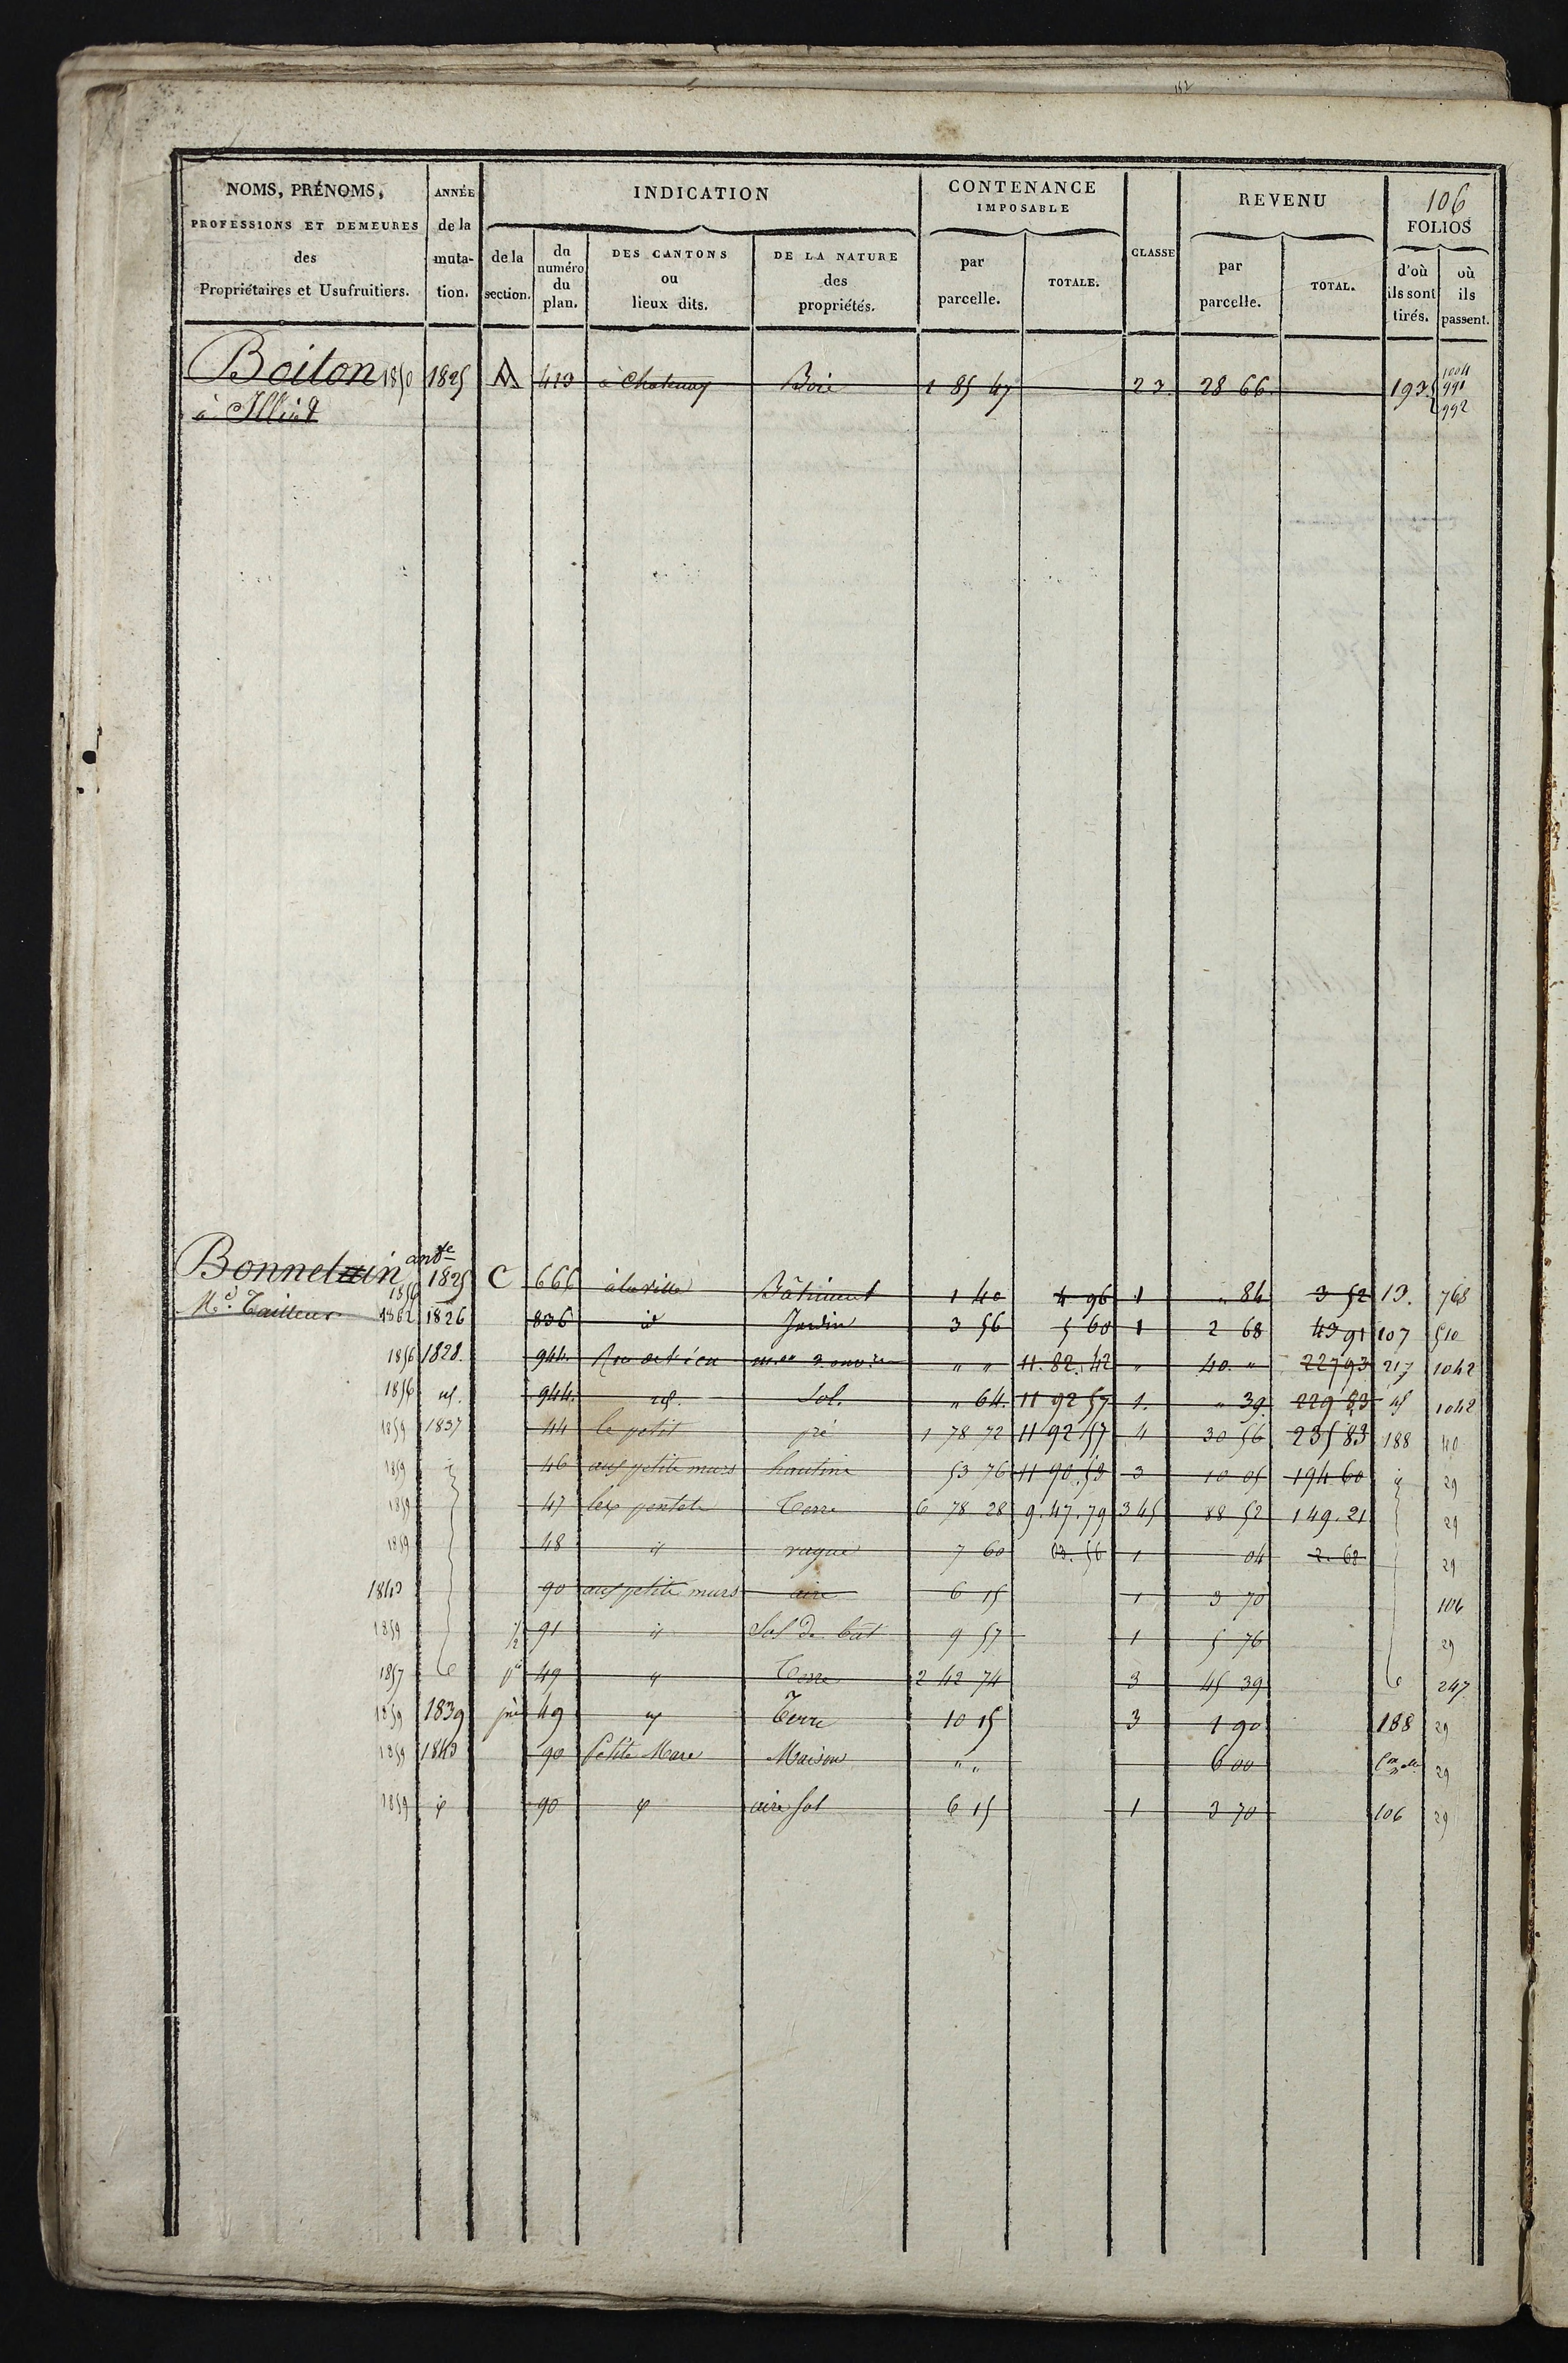 152
106
NOMS, PRÉNOMS, PROFESSIONS ET DEMEURES des Propriétaires et Usufruitiers.
ANNÉE de la muta- tion.
INDICATION
de la section.
du numéro du plan.
DES CANTONS ou lieux dits.
DE LA NATURE des propriétés.
CONTENANCE IMPOSABLE
par parcelle.
TOTALE.
CLASSE
REVENU
par parcelle.
TOTAL.
FOLIOS
d'où ils sont tirés.
où ils passent.
Boiton 1850 1825 A 413 à Chatenay Bois 1 85 47 23. 28 66. 193 1004
à 991
992
Bonnet ante
1856 1825 C 666 à la ville Bâtiment 1 40 4 96 1 " 84 3 52 13. 768
Md. Tailleur 1862 1826 836 id Jardin 3 56 5 60 1 2 68 43 91 107 510
1856 1828. 944. " " 11. 82. 42 " 40. " 227 93 217 1042
1856 id. 944. id. Sol. " 64. 11 92 57 1. " 39. 229 83 id 1042
1859 1837 44 le petit pré 1 78 72 11 92 57 4 30 56 235 83 188 40
1859 46 aux petits murs hautins 53 76 11 90 53 3 10 05 194 60 29
1859 47 les Terre 6 78 28 9. 47. 79 345 88 52 149. 21 29
1859 48 id 7 60 1 04 2. 68 29
1843 90 aux petits murs aire 6 15 1 3 70 106
1859 1/2 91 id Sol de bât 9 57 1 5 76 29
1857 pie 49 id Terre 2 42 74 3 45 39 247
1859 1839 pie 49 id Terre 10 15 3 1 90 188 29
1859 1843 90 Petite Mare Maison " " 6 00 29
1859 id 90 id aire sol 6 15 1 3 70 106 29